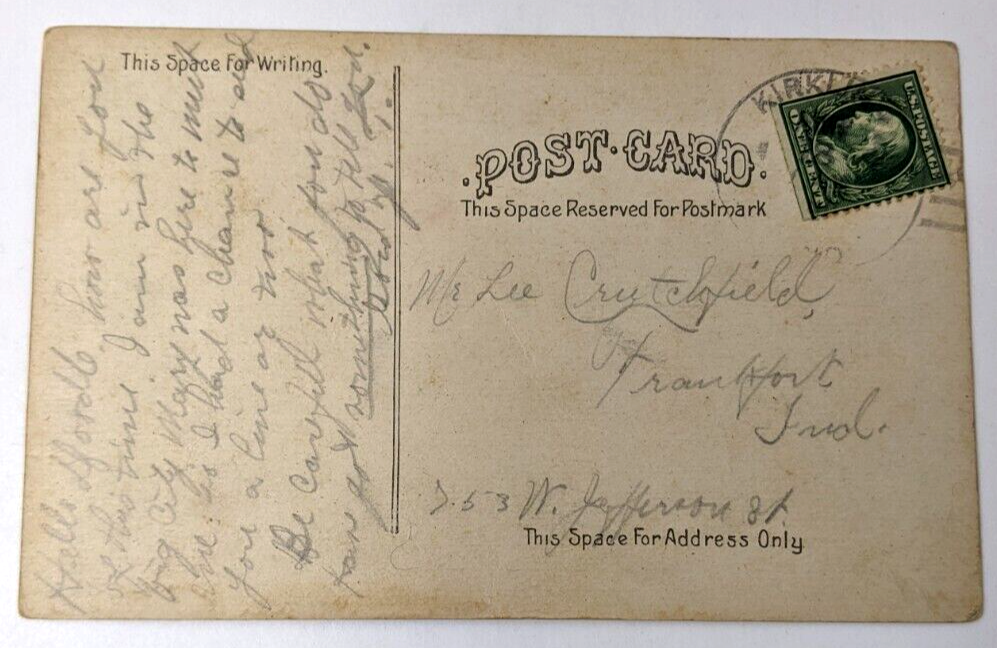 This Space For Writing.
Hello how are you
this time. I am in the
big City Mary was here to meet
me. So I had a chance to
you a line or two
Be careful what you do
have got something to tell you.
POST·CARD.
This Space Reserved For Postmark
KIRK
U.S. POSTAGE
ONE CENT
Mr Lee Crutchfield
Frankfort
Ind.
753 W. Jefferson St.
This Space For Address Only